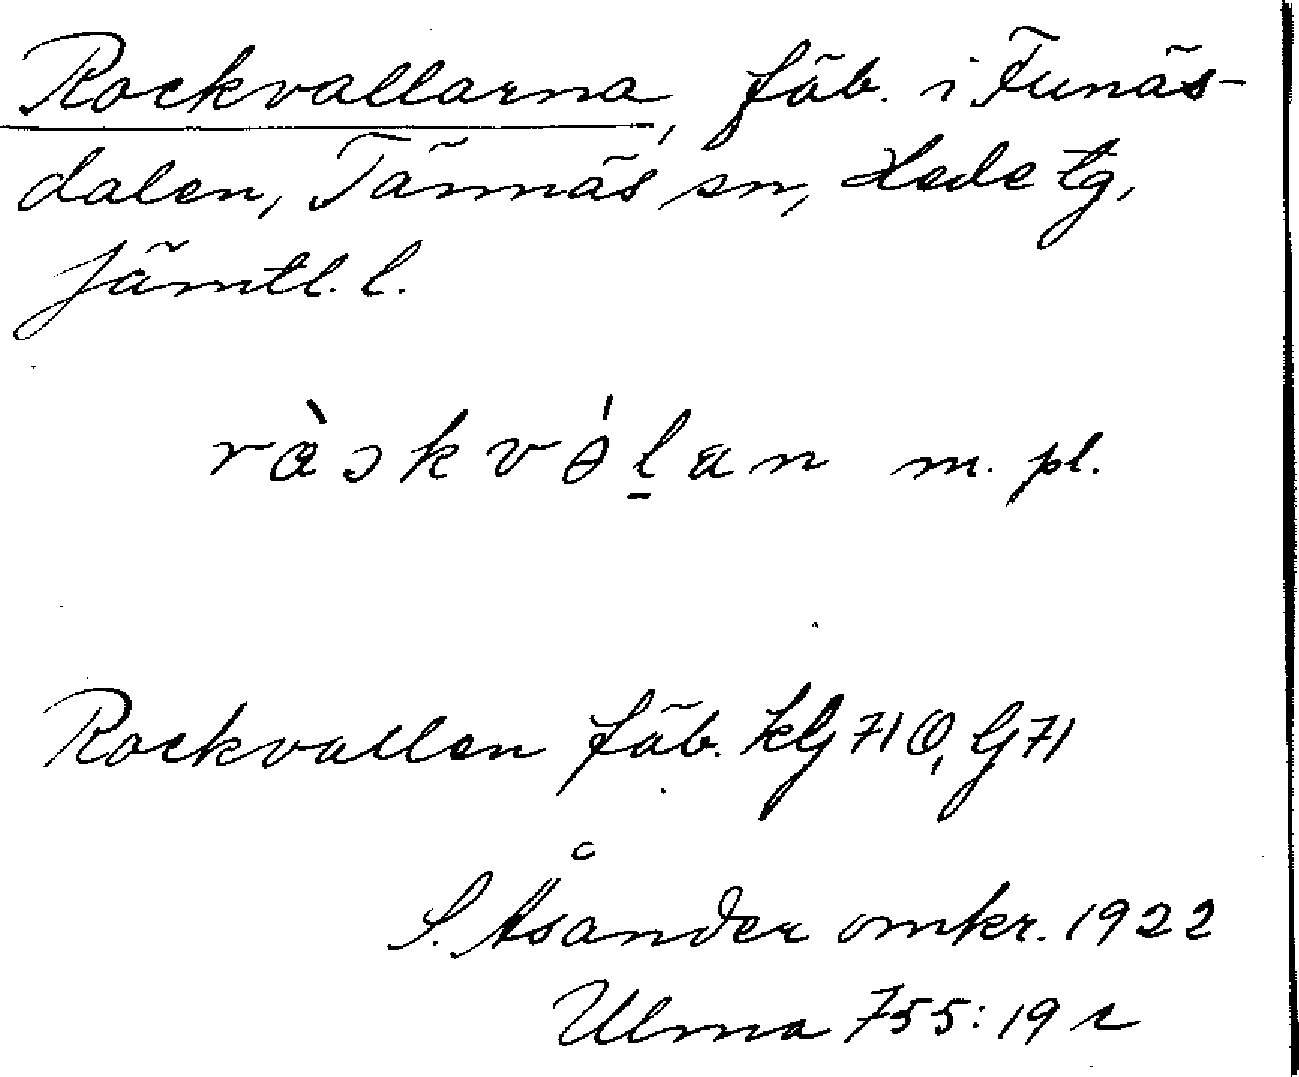 Rockvallarna, fäb. i Funäs-
dalen, Tännäs sn, Hede tg,
Jämtl. l.
m. pl.
Rockvallen fäb. kG 71 Ö, G 71
S. Åsander omkr. 1922
Ulma 755: 19 r